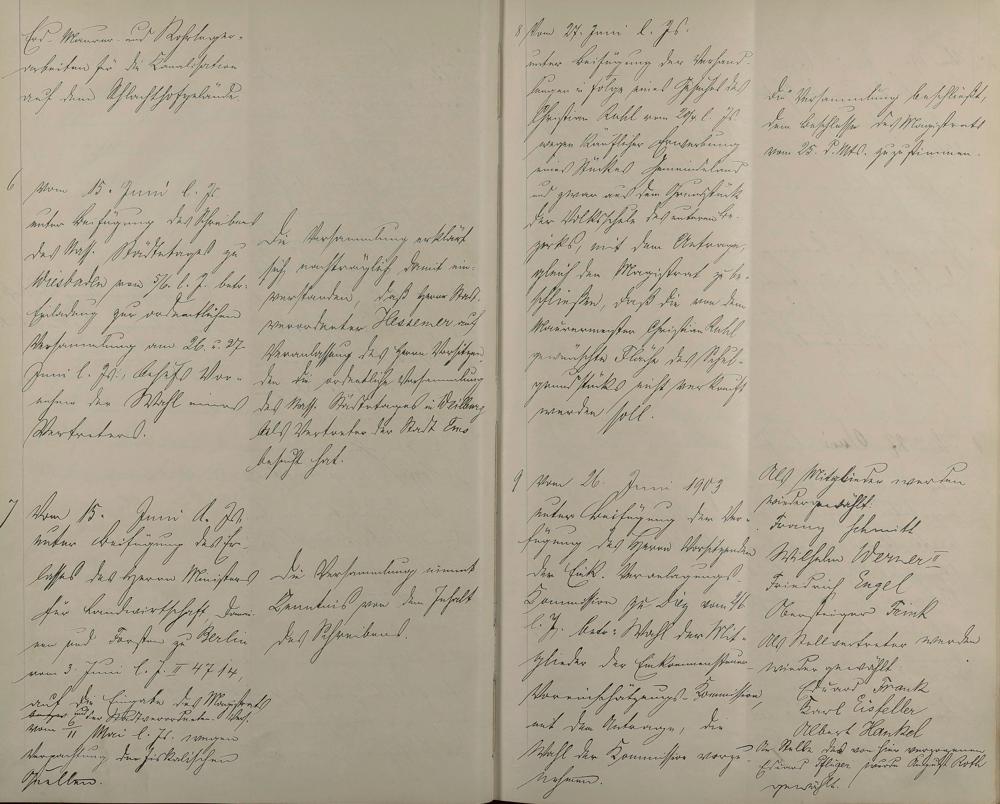 Erd- Maurer- und Rohrleger-
arbeiten für die Canalisation
auf dem Schlachthofgelände.
6 Vom 15. Juni l. Js.
unter Beifügung des Schreibens
des Nass. Städtetages zu
Wiesbaden vom 5/6. l. J. betr.
Einladung zur ordentlichen
Versammlung am 26. u. 27.
Juni l. Js., behufs Vor-
nahme der Wahl eines
Vertreters.
Die Versammlung erklärt
sich nachträglich damit ein-
verstanden, daß Herr Stadt-
verordneter Hessemer auf
Veranlassung des Herrn Vorsitzen-
den die ordentliche Versammlung
des Nass. Städtetages in Weilburg
als Vertreter der Stadt Ems
besucht hat.
7 Vom 15. Juni l. Js.
unter Beifügung des Er-
lasses des Herrn Ministers
für Landwirtschaft, Domä-
nen und Forsten zu Berlin
vom 3. Juni l. J. II 4714,
auf die Eingabe des Magistrats
und der Stadtverordneten Vers.
vom 6/11 Mai l. Js. wegen
Verpachtung der fiskalischen
Quellen.
Die Versammlung nimmt
Kenntnis von dem Inhalt
des Schreibens.
8 Vom 27. Juni l. Js.
unter Beifügung der Verhand-
lungen in Folge eines Gesuches des
Christian Kahl vom l. Js.
wegen käuflicher Erwerbung
eines Stückes Gemeindeland
und zwar aus dem Grundstück
der Volksschule des unteren Be-
zirks, mit dem Antrage,
gleich dem Magistrat zu be-
schließen, daß die von dem
Maurermeister Christian Kahl
gewünschte Fläche des Schul-
grundstücks nicht verkauft
werden soll.
Die Versammlung beschließt,
dem Beschlusse des Magistrats
vom 25. d. Mts. zuzustimmen.
9 Vom 26. Juni 1903
unter Beifügung der Ver-
fügung des Herrn Vorsitzenden
der Eink. Veranlagungs-
Kommission zu Diez vom
l. J. betr. Wahl der Mit-
glieder der Einkommensteuer
Voreinschätzungs-Kommission,
mit dem Antrage, die
Wahl der Kommission vorzu-
nehmen.
Als Mitglieder werden
wiedergewählt:
Franz Schmitt
Wilhelm Werner II
Friedrich Engel
Obersteiger Frink
Als Stellvertreter werden
wiedergewählt:
Eduard Frank
Karl Eisfeller
Albert Hankel
An Stelle des von hier verzogenen
Eduard Pflüger wurde August Roth
gewählt.